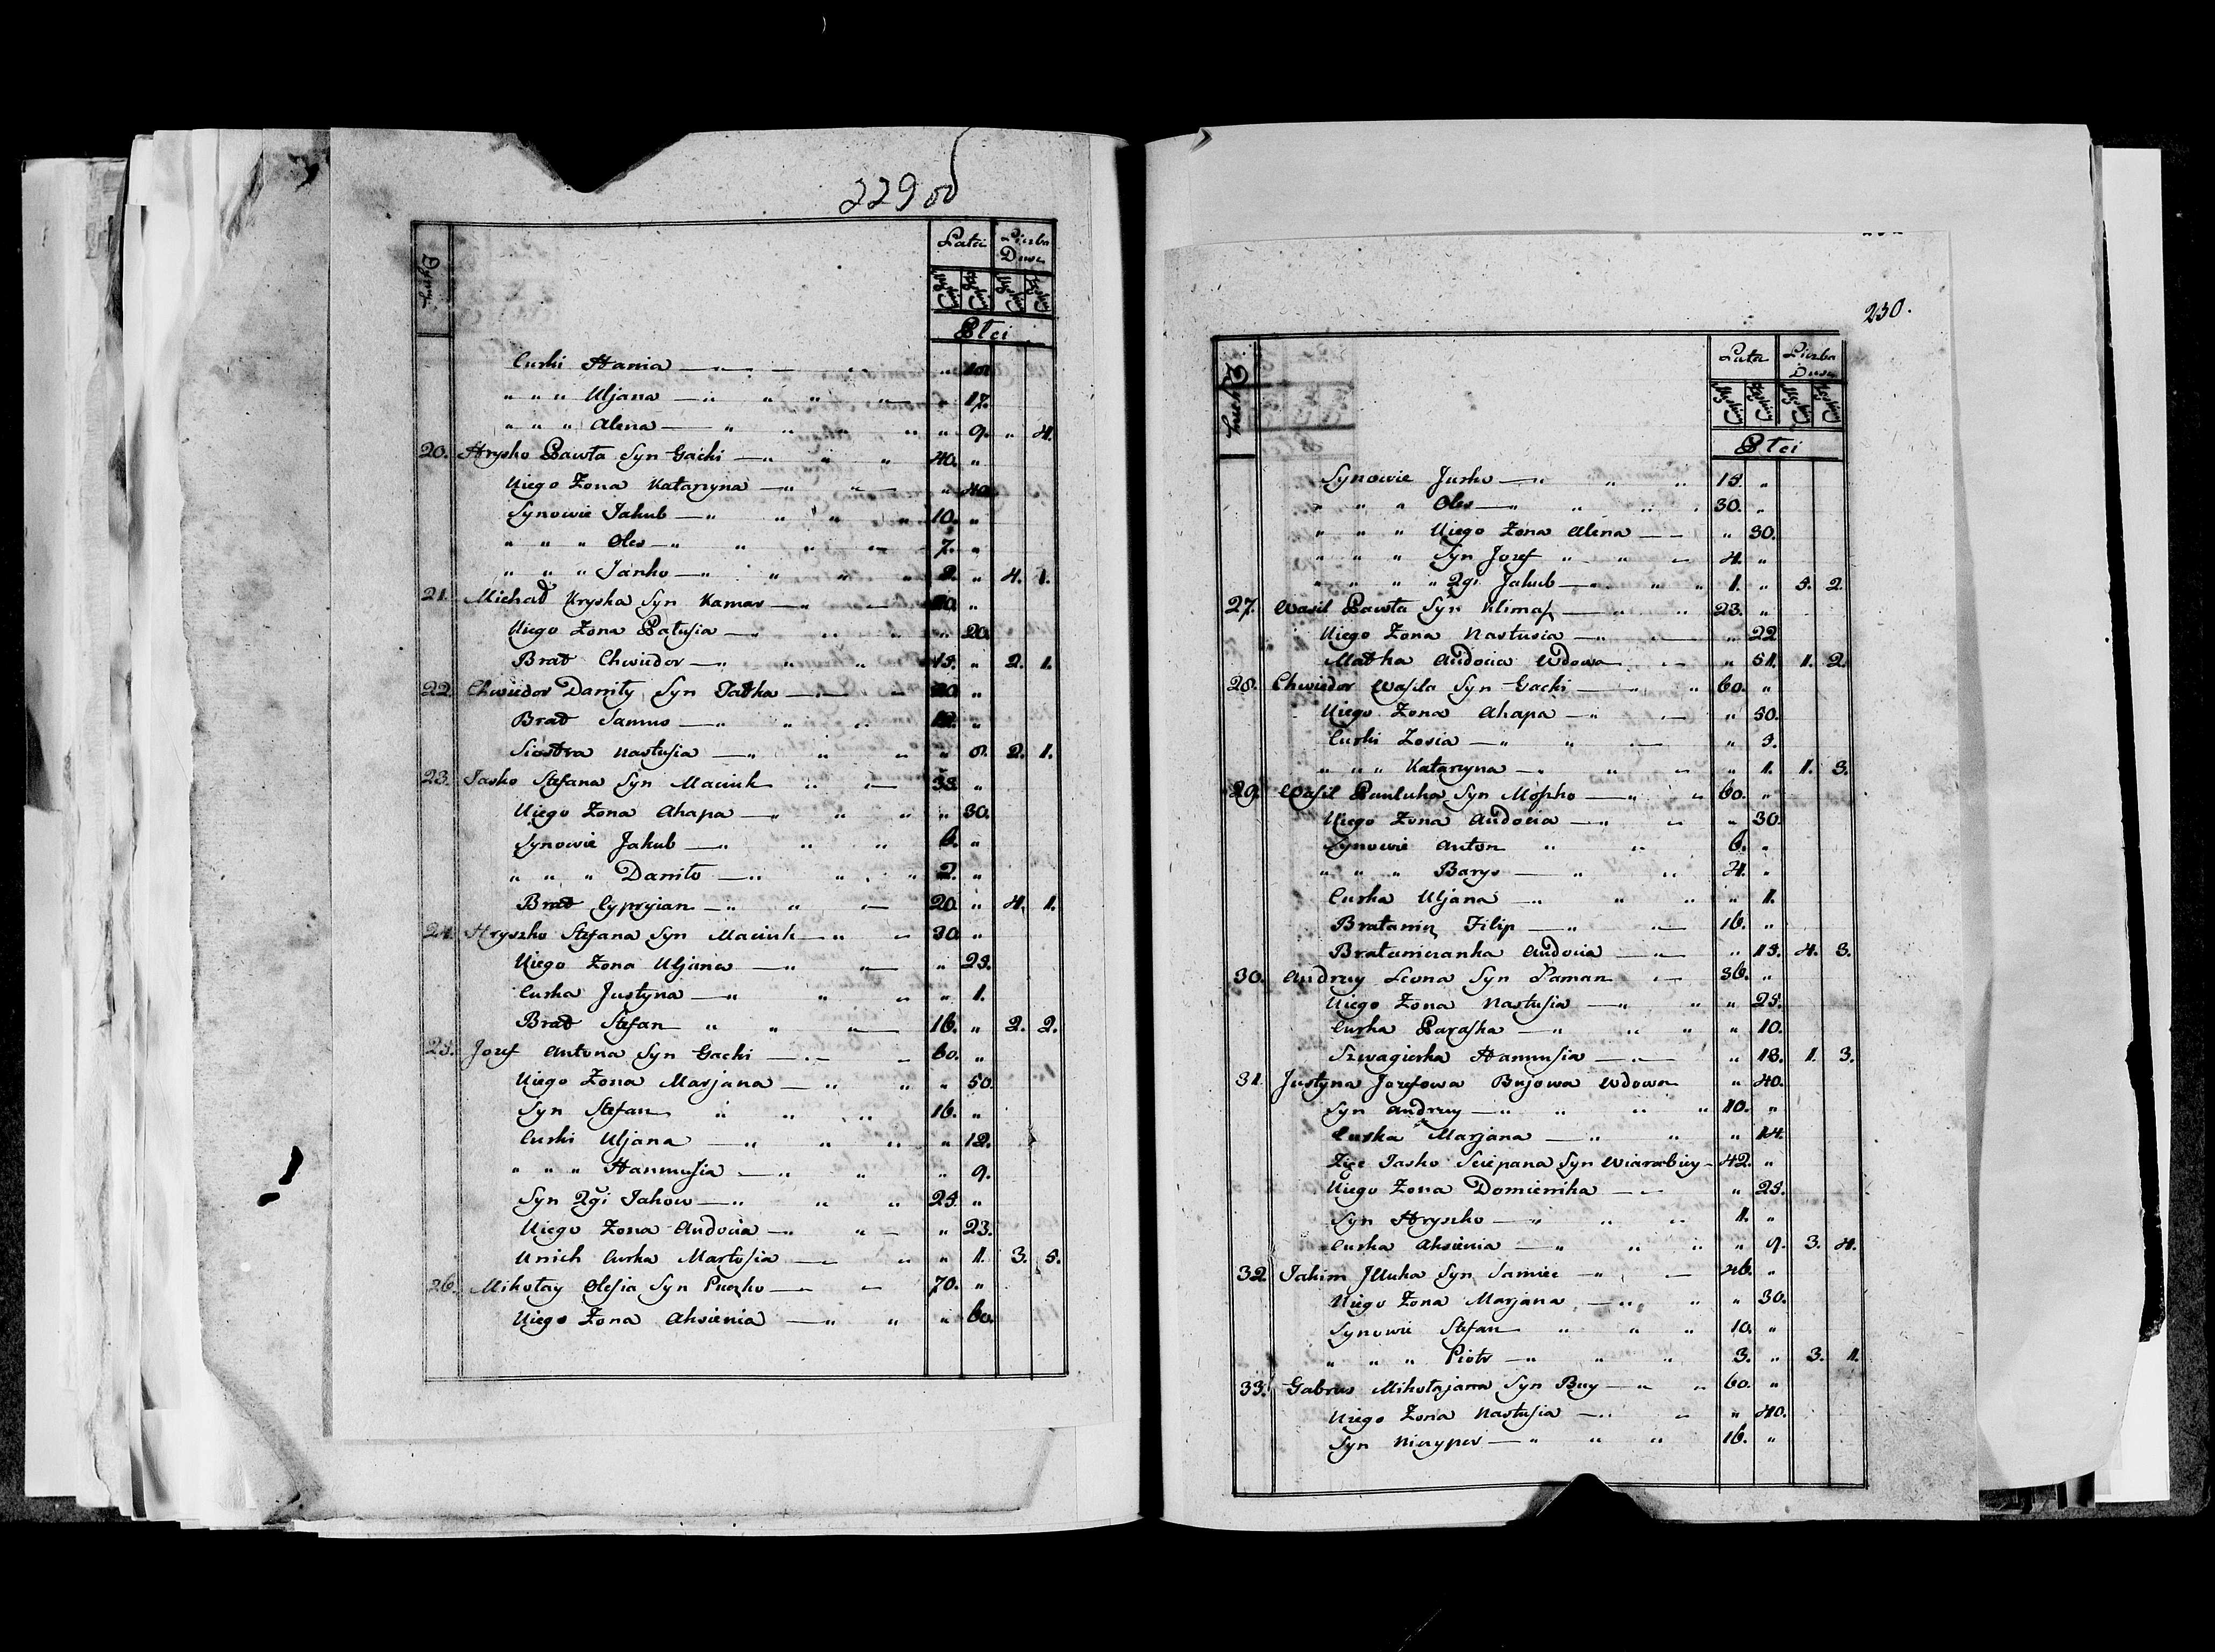 229 об
Dymy
Lata Liczba Dusz
Męskiey Żeńskiey Męskiey Żeńskiey
Płci
Curki Hania — " —
" " " Uljana — " " " — " 17.
" " " Alena — " " " " " 9. " 4.
20. Hryszko Pawła Syn Gacki — " " " 40. "
Niego Żona Katarzyna — " — " 40.
Synowie Jakub — " " " " 10. "
" " " Oles — " " " — 7. "
" " " Janko — " " " " 2. " 4. 1.
21. Michał Kryska Syn Kamar — " — "
Niego Żona Patusia — " " " " 20.
Brat Chwiedor — " " " 15. " 2. 1.
22. Chwiedor Daniły Syn Jatka — " — "
Brat Samus — " " " "
Siostra Nastusia — " " " " 2. 1.
23. Jasko Stefana Syn Maciuk " — 35. "
Niego Żona Ahapa — " " " " 30.
Synowie Jakub — " " " 6. "
" " " Daniło — " " " 2. "
Brat Cypryian — " " — 20. " 4. 1.
24. Hryszko Stefana Syn Maciuk — " — 30 "
Niego Żona Uljana — " — " 25.
Curka Justyna — " " " " 1.
Brat Stefan " " — 16. " 2. 2.
25. Jozef Antona Syn Gacki — " — 60. "
Niego Żona Marjana — " " " 50.
Syn Stefan " " " 16. "
Curki Uljana — " " " " 12.
" " " Hannusia — " " " 9.
Syn 2gi Jakow — " " " 25. "
Niego Żona Audocia — " " — " 23.
Unich Curka Martusia — " " 1. 3. 5.
26. Mikołay Olesia Syn Puczko — — 70. "
Niego Żona Aksienia — " " " 60.
230.
Dymy
Lata Liczba Dusz
Męskiey Żeńskiey Męskiey Żeńskiey
Płci
Synowie Jurko — " " " 15. "
" " " Oles — " " " " 30. "
" " " Niego Żona Alena — — " 30.
" " " Syn Jozef " " — 4. "
" " " " 2gi Jakub — " " " 1. " 5. 2.
27. Wasil Pawła Syn Klimaß — " " 23. "
Niego Żona Nastusia — " — " 22
Matka Audocia Wdowa " — " 51. 1. 2.
28. Chwiedor Wasila Syn Gacki — " " 60. "
Niego Żona Ahapa — " — " 50.
Curki Zosia — " " — " 3.
" " " Katarzyna — " " — " 1. 1. 3.
29. Wasil Pauluka Syn Moßko — " " 60. "
Niego Żona Audocia — " — " 30.
Synowie Anton " " 6. "
" " " Barys — " " 4. "
Curka Uljana — " " " " 1.
Bratanin Filip — " — 16. "
Brataniczanka Audocia — — " 15. 4. 3.
30. Andrzey Leona Syn Paman — 36. "
Niego Żona Nastusia — " " " 25.
Curka Paraska — " " " " 10.
Szwagierka Hannusia — " — " 18. 1. 3.
31. Justyna Jozefowa Bujowa Wdowa " 40.
Syn Andrzey — " " " " 10. "
Curka Marjana — " " " 14.
Zięc Jasko Sciepana Syn — 42. "
Niego Żona Domienika — — " 25.
Syn Hryszko — " " " 1. "
Curka Aksienia — " " " " 9. 3. 4.
32. Jakim Jlluka Syn Samiec — " — 46. "
Niego Żona Marjana — " " " 30.
Synowie Stefan " " " 10. "
" " " Piotr — " " " 3. " 3. 1.
33. Gabrus Mikołajana Syn Buy — " " 60. "
Niego Żona Nastusia — " — " 40.
Syn Niczypor — " " " 16. "